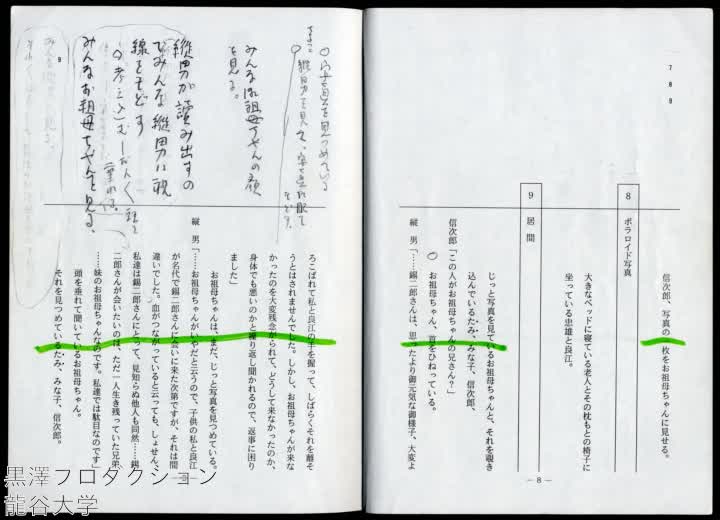 信次郎、写真の一枚をお祖母ちゃんに見せる。
8 ポラロイド写真
大きなベッドに寝ている老人とその枕もとの椅子に
坐っている忠雄と良江。
9 居間
じっと写真を見ているお祖母ちゃんと、それを覗き
込んでいるたみ、みな子、信次郎、
信次郎「この人がお祖母ちゃんの兄さん?」
お祖母ちゃん、首をひねっている。
縦男「……錫二郎さんは、思ったより御元気な御様子、大変よ
― 8 ―
みんなお祖母ちゃんの顔
を見る。
縦男が讀み出すの
でみんな縦男に視
線をもどす
みんなお祖母ちゃんを見る、
ろこばれて私と良江の手を握って、しばらくそれを離そ
うとはされませんでした。しかし、お祖母ちゃんが来な
かったのを大変残念がられて、どうして来なかったのか、
身体でも悪いのかと繰り返し聞かれるので、返事に困り
ました」
お祖母ちゃんは、まだ、じっと写真を見つめている。
縦男「……お祖母ちゃんがいやだと云うので、子供の私と良江
が名代で錫二郎さんに会いに来た次第ですが、それは間
違いでした。血がつながっていると云っても、しょせん、
私達は錫二郎さんにとって、見知らぬ他人も同然……錫
二郎さんが会いたいのは、ただ一人生き残っていた兄弟、
……妹のお祖母ちゃんなのです。私達では駄目なのです」
頭を垂れて聞いているお祖母ちゃん。
それを見つめているたみ、みな子、信次郎。
黒澤プロダクション
龍谷大学